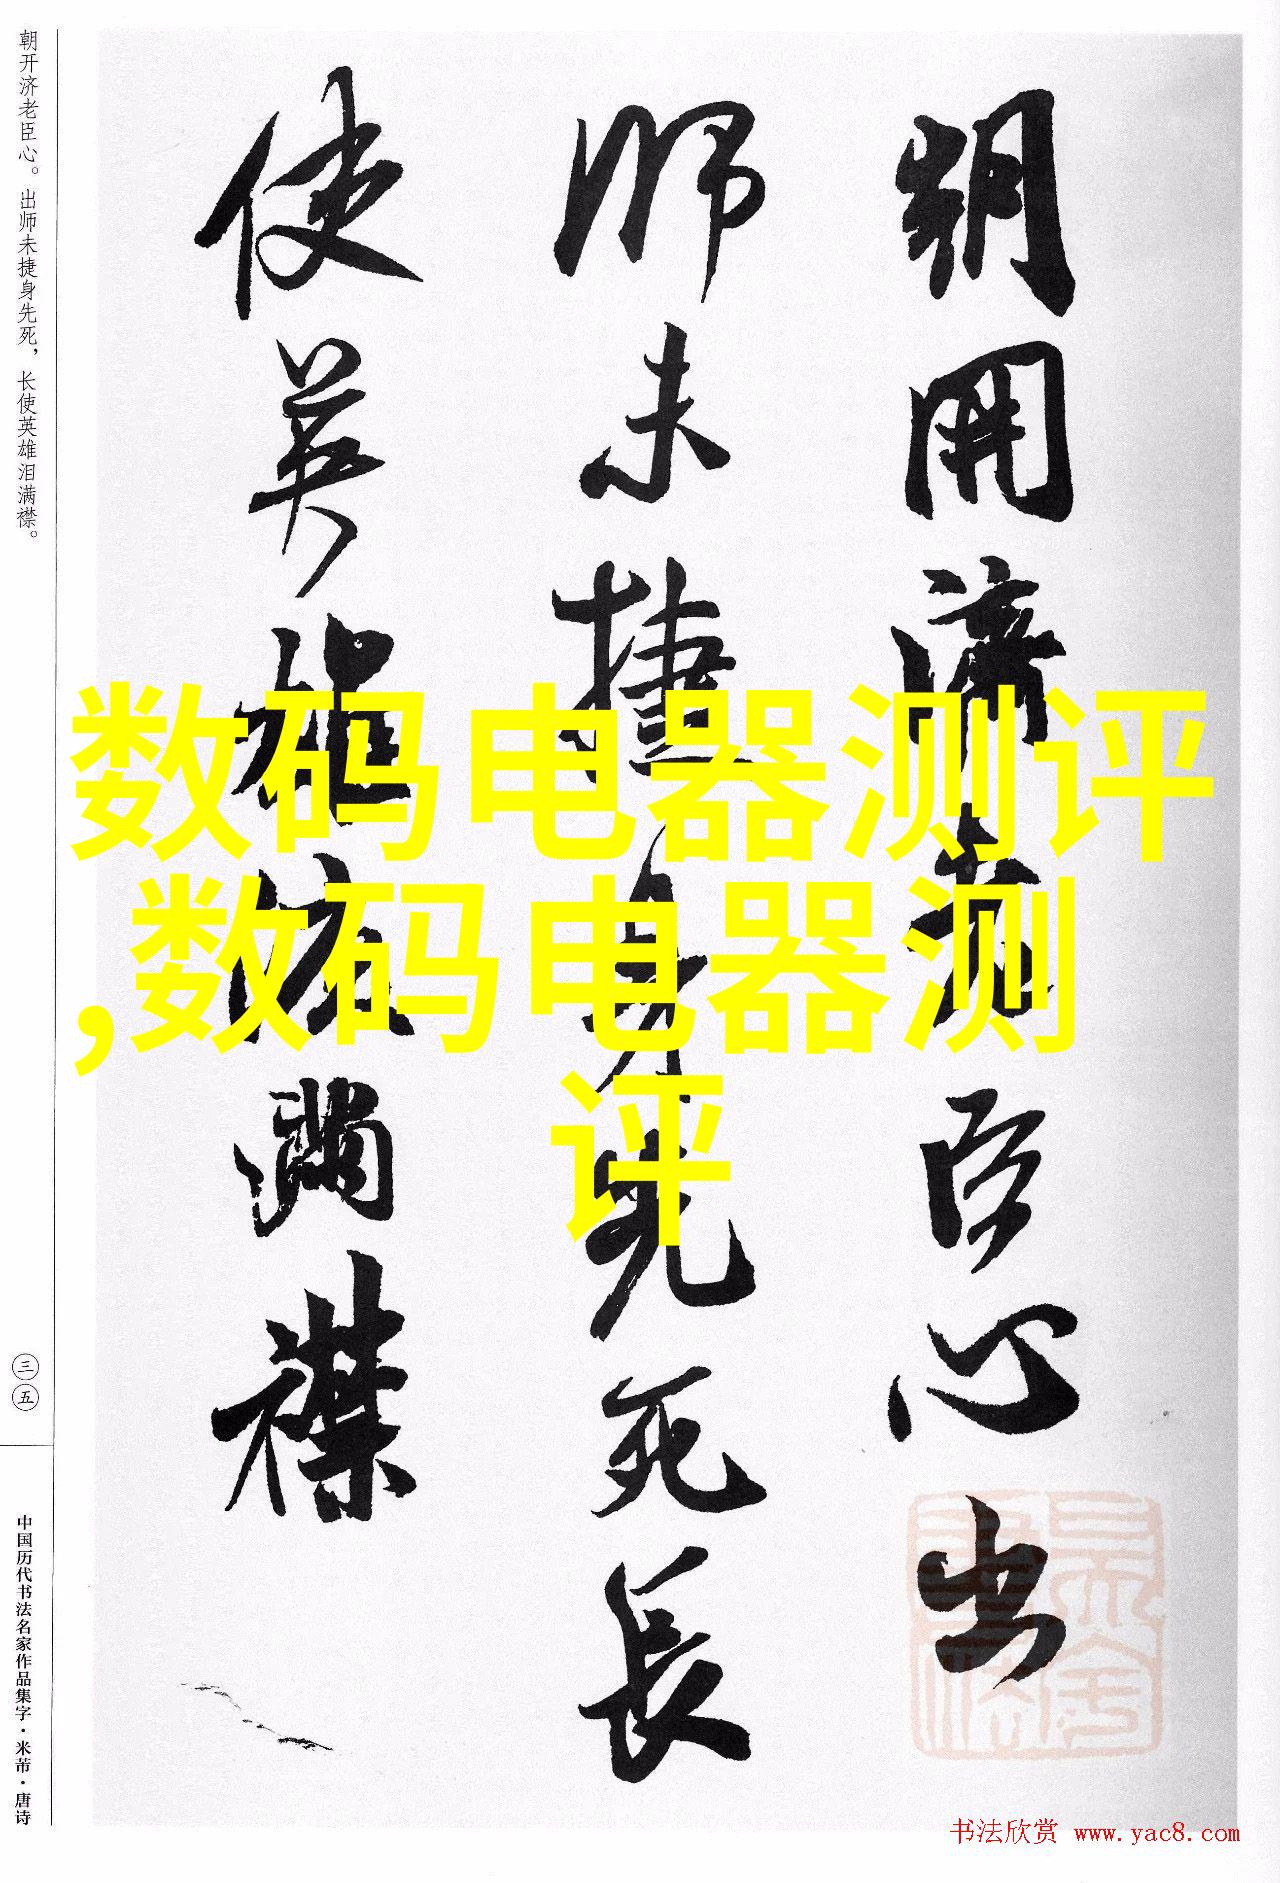 朝開濟老臣心出
师未捷身先死長
使英雄泪満襟
朝开济老臣心。出师未捷身先死，长使英雄泪满襟。
三五
中国历代书法名家作品集字·米芾·唐诗
数码电器测评
,数码电器测
评
书法欣赏 www.yac8.com